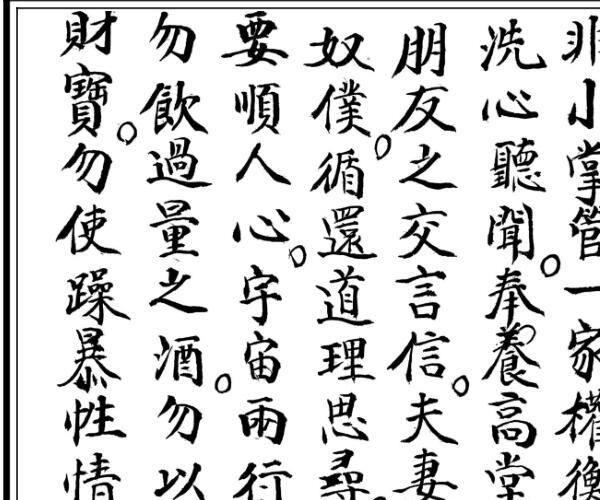 非小掌管一家權衡
洗心聽聞。奉養高堂
朋友之交言信。夫妻
奴僕。循還道理思尋。
要順人心。宇宙兩行
勿飲過量之酒。勿以
財寶。勿使躁暴性情